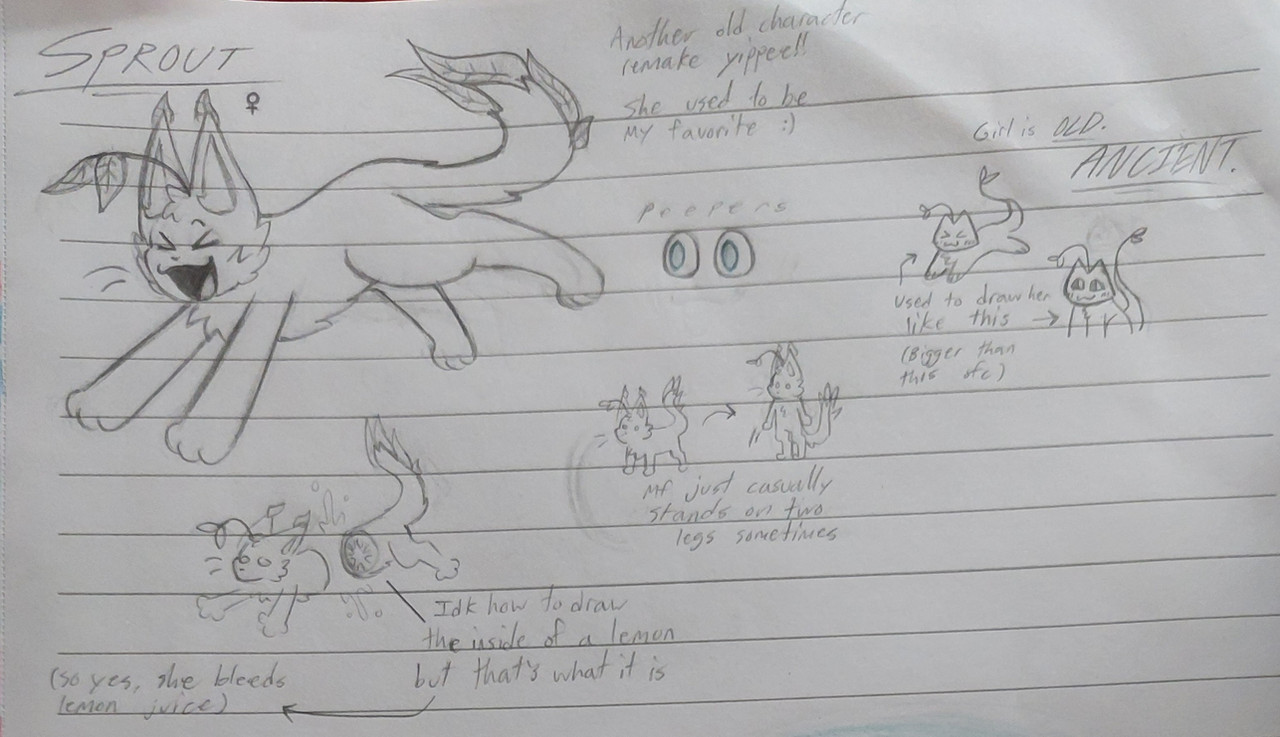 SPROUT
♀
Another old character
remake yippee!!
She used to be
my favorite :)
Girl is OLD.
ANCIENT.
Peepers
Used to draw her
like this
(Bigger than
this ofc)
Mf just casually
stands on two
legs sometimes
Idk how to draw
the inside of a lemon
but that's what it is
(So yes, she bleeds
lemon juice)